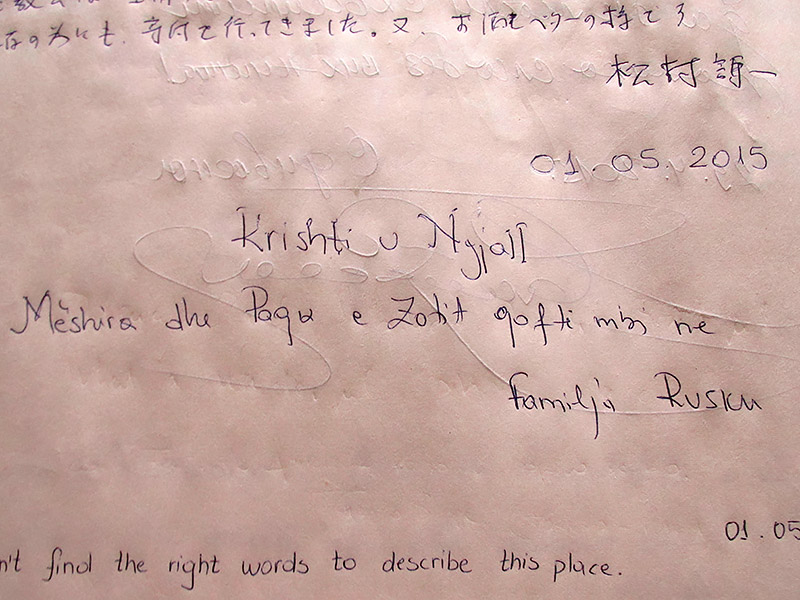 の為にも、寄付を行ってきました。又、
松村
01.05.2015
Krishti u Ngjall
Mëshira dhe Paqja e Zotit qoftë mbi ne
familja Rusku
01.05
n't find the right words to describe this place.